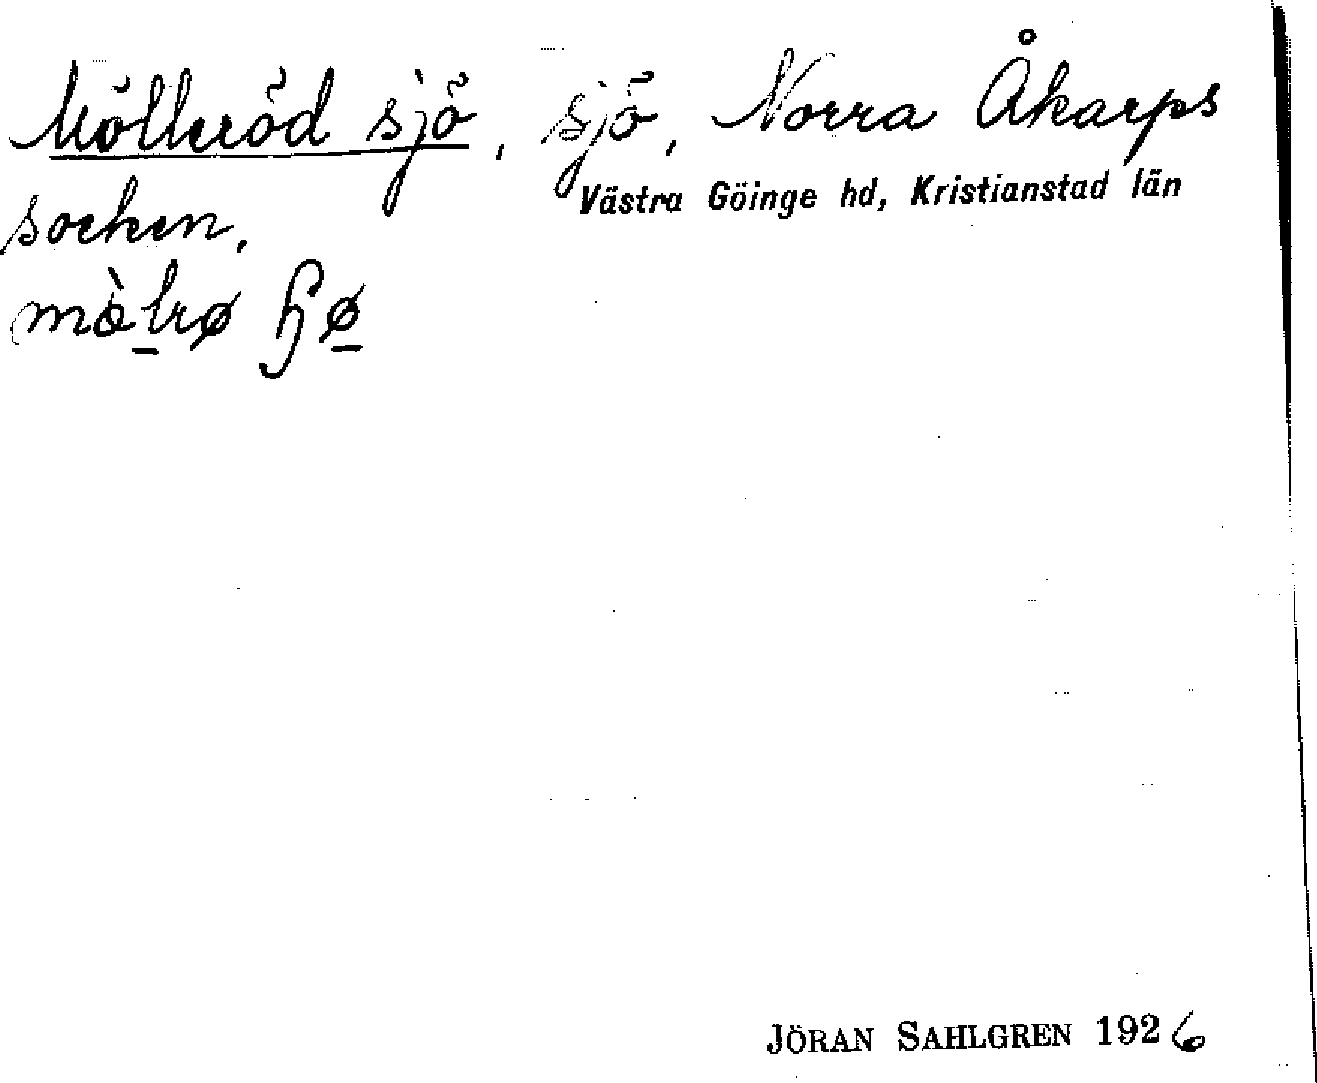 Mölleröd sjö, sjö, Norra Åkarps
Västra Göinge hd, Kristianstad län
socken.
JÖRAN SAHLGREN 1926